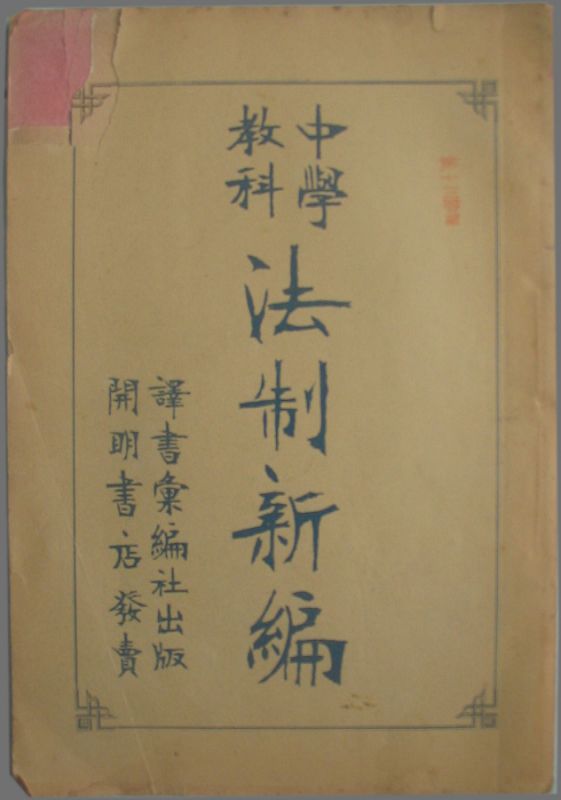 中學
教科
法制新編
譯書彙編社出版
開明書店發賣